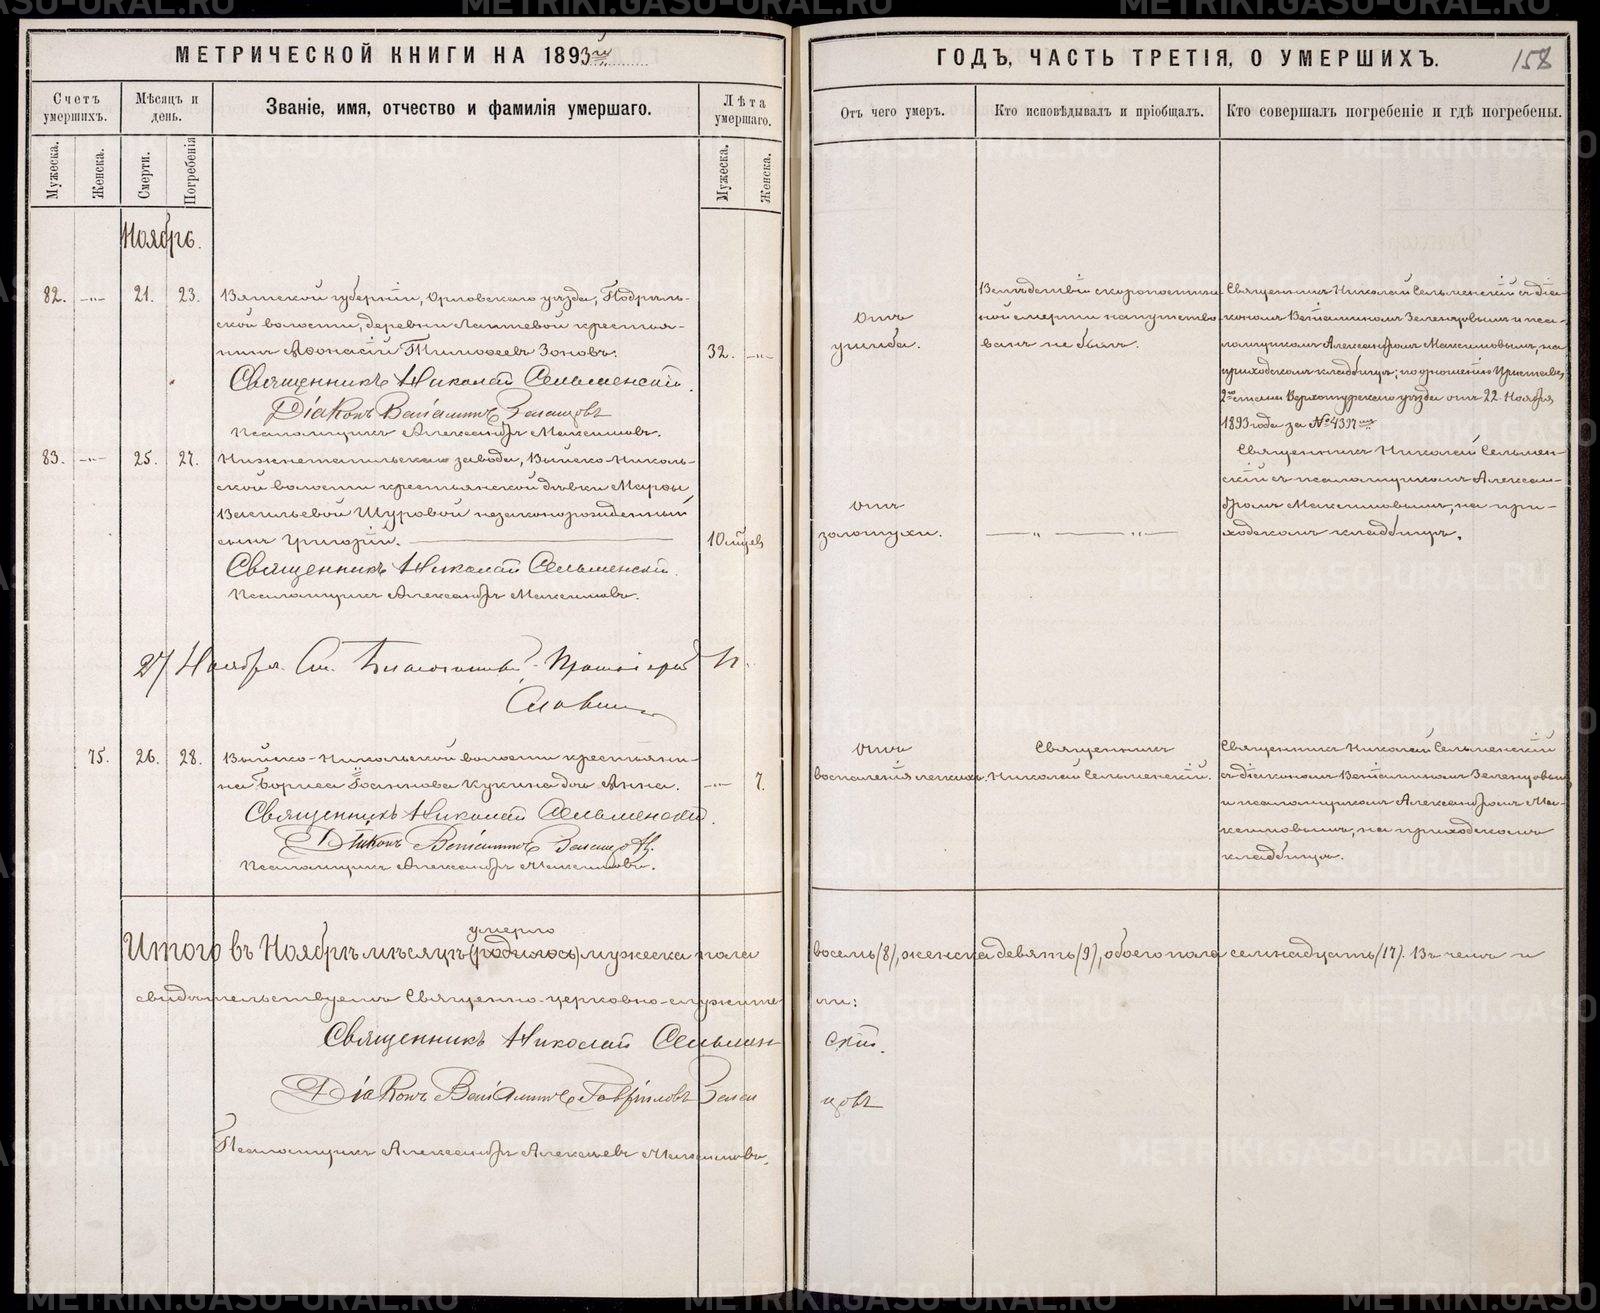 МЕТРИЧЕСКОЙ КНИГИ НА 1893й
ГОДЪ, ЧАСТЬ ТРЕТІЯ, О УМЕРШИХЪ.
158
Счетъ умершихъ.
Мѣсяцъ и день.
Званіе, имя, отчество и фамилія умершаго.
Лѣта умершаго.
Отъ чего умеръ.
Кто исповѣдывалъ и пріобщалъ.
Кто совершалъ погребеніе и гдѣ погребены.
Мужеска.
Женска.
Смерти.
Погребенія
Мужеска.
Женска.
Ноябрь.
82. -"- 21. 23.
Вятской губерніи, Орловскаго уѣзда, Подрѣль-
ской волости, деревни Лаптевой крестья-
нинъ Аѳонасій Тимоѳеевъ Зоновъ.
32. -"-
Священникъ Николай Сельменскій.
Діаконъ Веніаминъ Зеленцовъ
Псаломщикъ Александръ Максимовъ.
отъ
ушиба.
Вслѣдствіи скоропостиж-
ной смерти напутство-
ванъ не былъ.
Священникъ Николай Сельменскій съ діа-
кономъ Веніаминомъ Зеленцовымъ и пса-
ломщикомъ Александромъ Максимовымъ, на
приходскомъ кладбищѣ; по отношенію Пристава
2го стана Верхотурскаго уѣзда отъ 22 Ноября
1893 года за № 4397
83. -"- 25. 27.
Нижнетагильскаго завода, Выйско-Николь-
ской волости крестьянской дѣвки Марѳы
Васильевой Щуровой незаконорожденный
сынъ Григорій.
10 мцев
Священникъ Николай Сельменскій.
Псаломщикъ Александръ Максимовъ.
отъ
золотухи.
— " — " —
Священникъ Николай Сельмен-
скій съ псаломщикомъ Алексан-
дромъ Максимовымъ, на при-
ходскомъ кладбищѣ.
27 Ноября. См. Благочинный Протоіерей П.
Словцовъ
75. 26. 28.
Выйско-Никольской волости крестьяни-
на Бориса Іоаннова Кукина дочь Анна.
-"- 7.
Священникъ Николай Сельменскій.
Діаконъ Веніаминъ Зеленцовъ.
Псаломщикъ Александръ Максимовъ.
отъ
воспаленія легкихъ.
Священникъ
Николай Сельменскій.
Священникъ Николай Сельменскій
съ діакономъ Веніаминомъ Зеленцовымъ
и псаломщикомъ Александромъ Мак-
симовымъ, на приходскомъ
кладбищѣ.
умерло
Итого въ Ноябрѣ мѣсяцѣ (родилось) мужеска пола восемь (8), женска девять (9), обоего пола семнадцать (17). Въ чемъ и
свидѣтельствуемъ Священно-церковно-служители:
Священникъ Николай Сельменскій.
Діаконъ Веніаминъ Гавріиловъ Зеленцовъ
Псаломщикъ Александръ Алексѣевъ Максимовъ.
METRIKI.GASO-URAL.RU